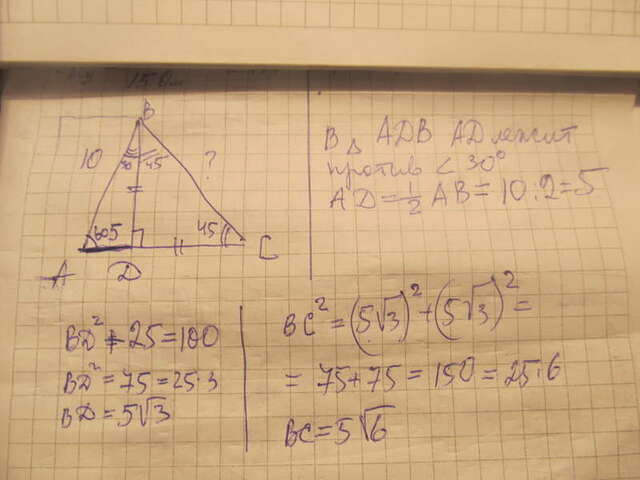 15 см
B
10
30
45
?
60
5
45
A
D
C
В △ ADB AD лежит
против < 30°
AD = 1/2 AB = 10 : 2 = 5
BD² + 25 = 100
BD² = 75 = 25·3
BD = 5√3
BC² = (5√3)² + (5√3)² =
= 75 + 75 = 150 = 25·6
BC = 5√6